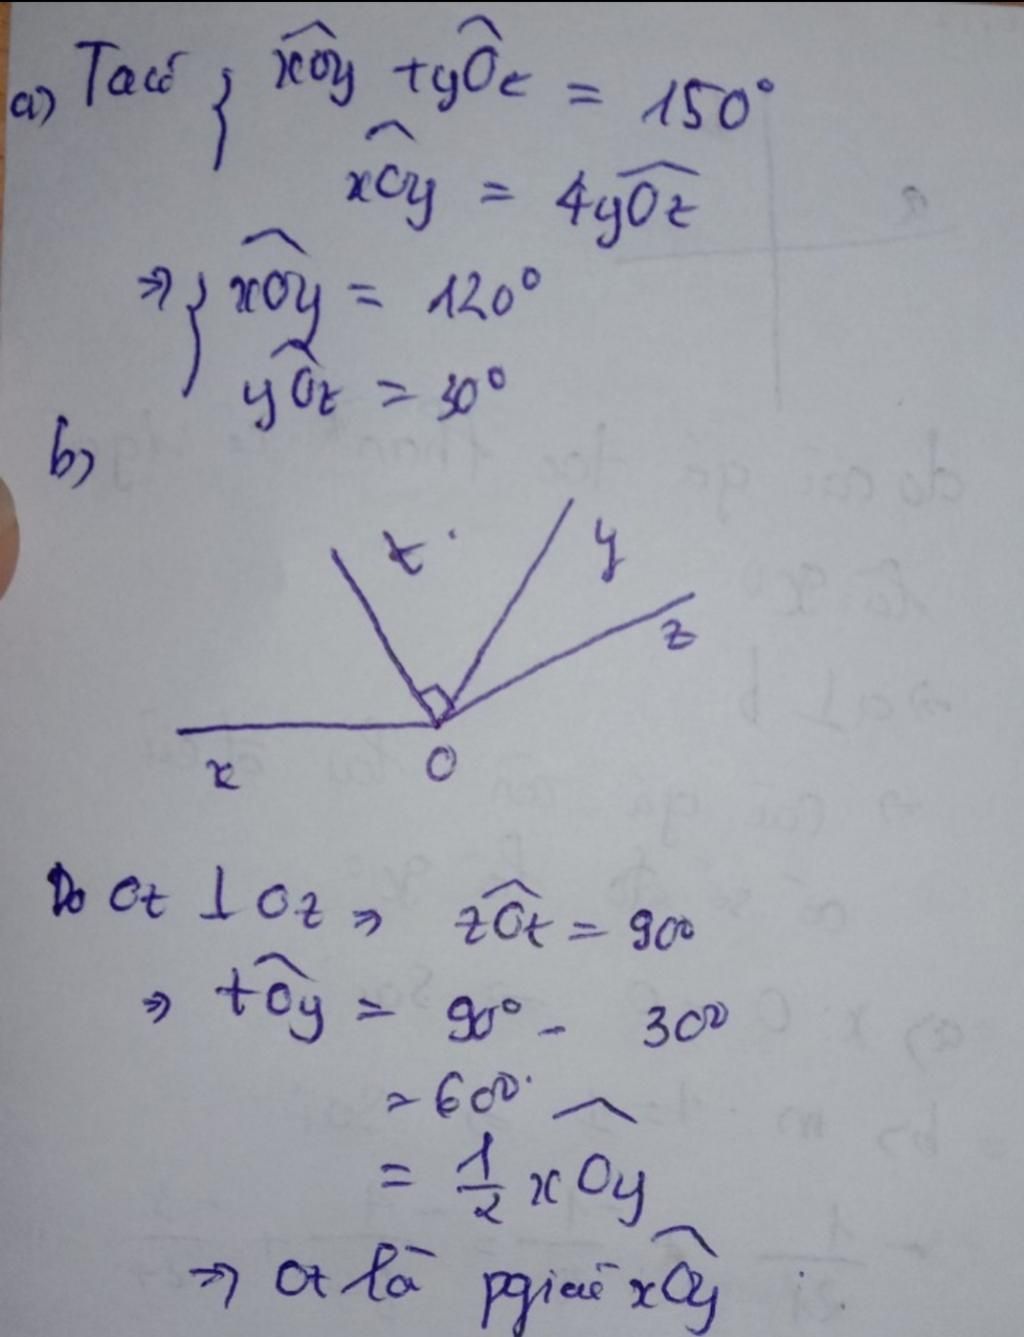 a) Ta có { xÔy + yÔz = 150°
xÔy = 4yÔz
⇒ { xÔy = 120°
yÔz = 30°
b)
t y
z
x O
Do Ot ⊥ Oz ⇒ zÔt = 90°
⇒ tÔy = 90° - 30°
= 60°
= 1/2 xÔy
⇒ Ot là pgiác xÔy